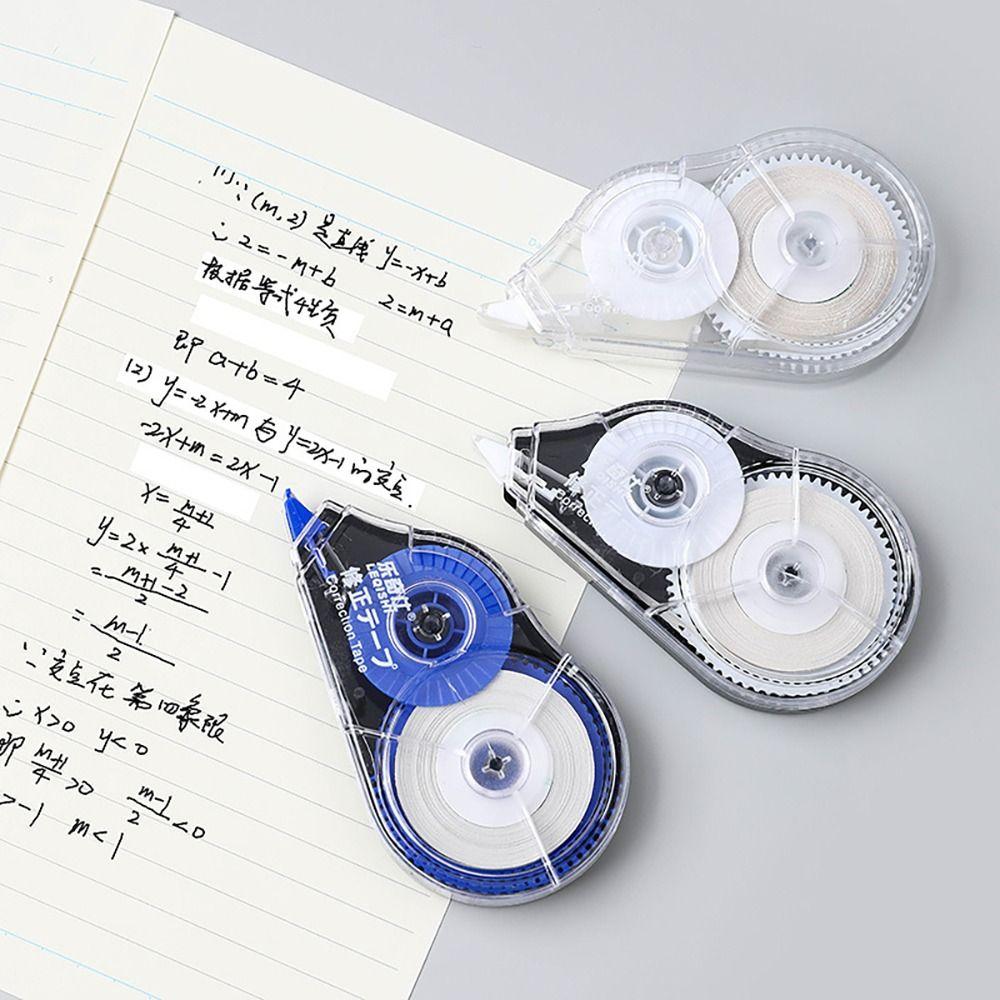 (1)∵(m,2)是直线 y=-x+b
∴2=-m+b 2=m+a
根据等式性质
即 a+b=4
(2) y=-2x+m 与 y=2x-1 的交点
-2x+m=2x-1
x=\frac{m+1}{4}
y=2×\frac{m+1}{4}-1
=\frac{m+1-2}{2}
=\frac{m-1}{2}
∵交点在第四象限
∴x>0 y<0
即 \frac{m+1}{4}>0 \frac{m-1}{2}<0
>-1 m<1
乐奇仕®
LEQISHI
修正テープ
Correction Tape
Correction